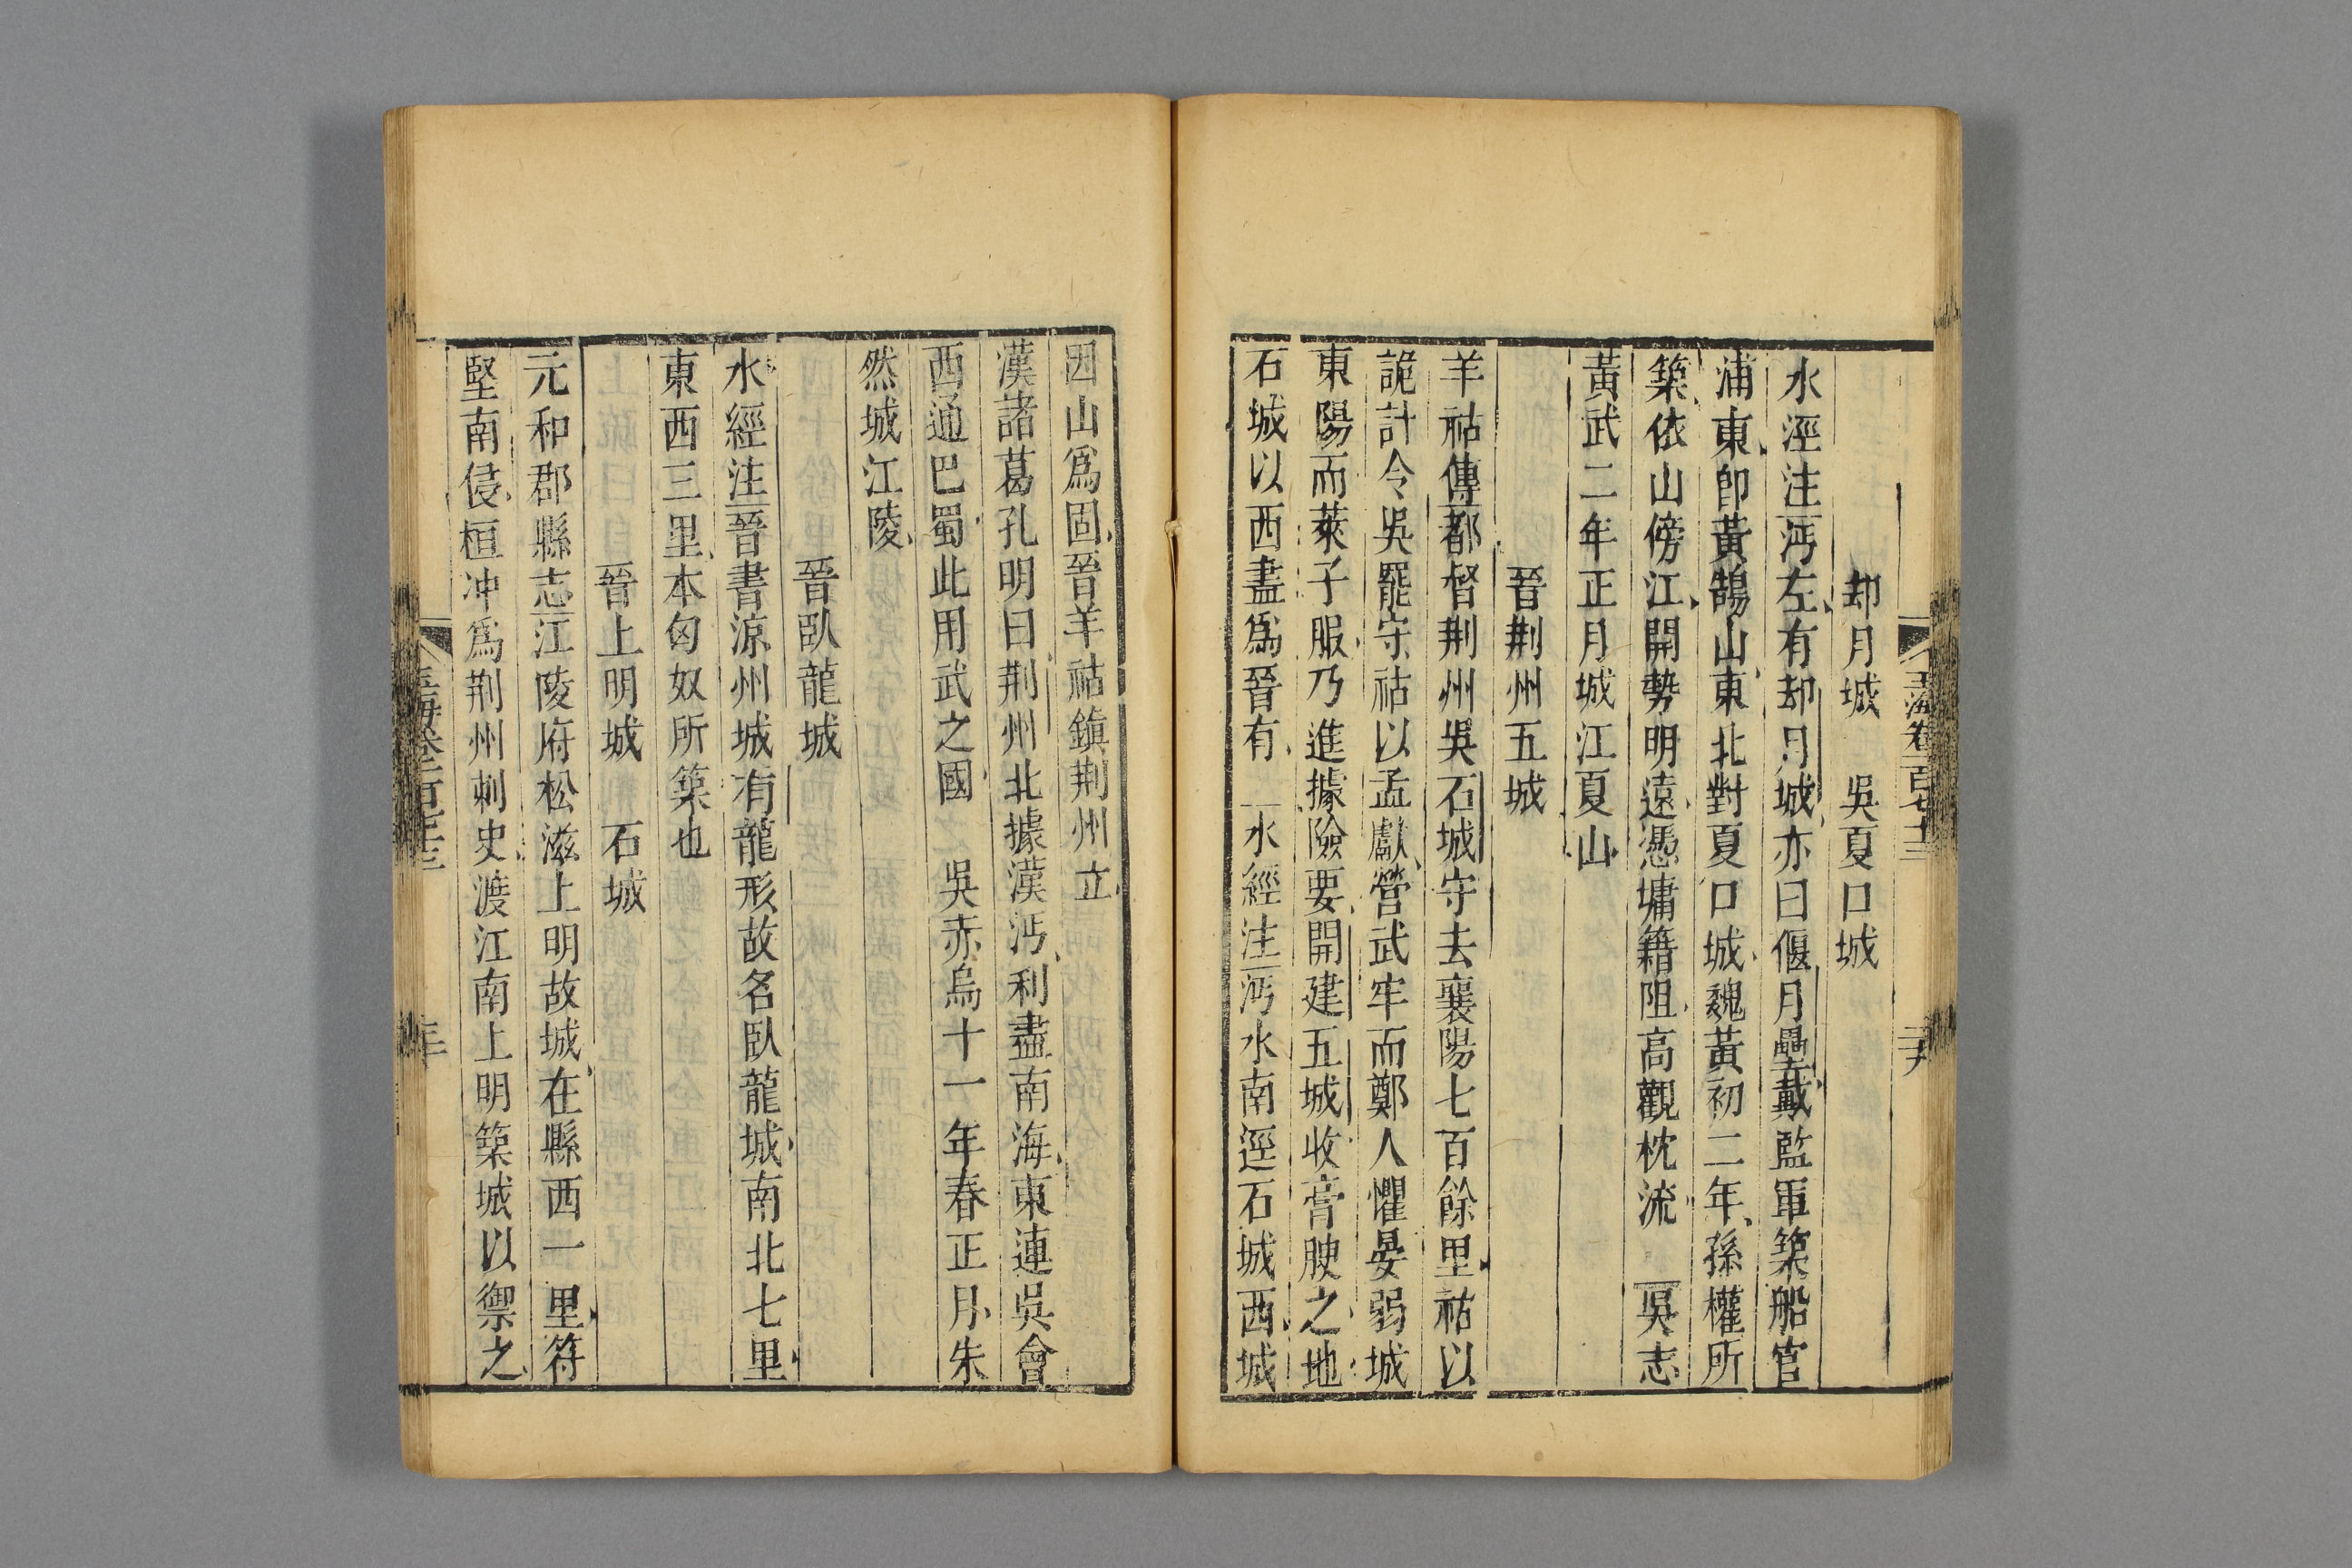 玉海卷一百七十三
却月城　吳夏口城
水經注沔左有却月城亦曰偃月壘戴監軍築船官
浦東卽黃鵠山山東北對夏口城魏黃初二年孫權所
築依山傍江開勢明遠憑墉籍阻高觀枕流　吳志
黃武二年正月城江夏山
晉荆州五城
羊祜傳都督荆州吳石城守去襄陽七百餘里祜以
詭計令吳罷守祜以孟獻營武牢而鄭人懼晏弱城
東陽而萊子服乃進據險要開建五城收膏腴之地
石城以西盡爲晉有　水經注沔水南逕石城西城
因山爲固晉羊祜鎮荆州立
漢諸葛孔明曰荆州北據漢沔利盡南海東連吳會
西通巴蜀此用武之國　吳赤烏十一年春正月朱
然城江陵
晉臥龍城
水經注晉書涼州城有龍形故名臥龍城南北七里
東西三里本匈奴所築也
晉上明城　石城
元和郡縣志江陵府松滋上明故城在縣西一里符
堅南侵桓冲爲荆州刺史渡江南上明築城以禦之